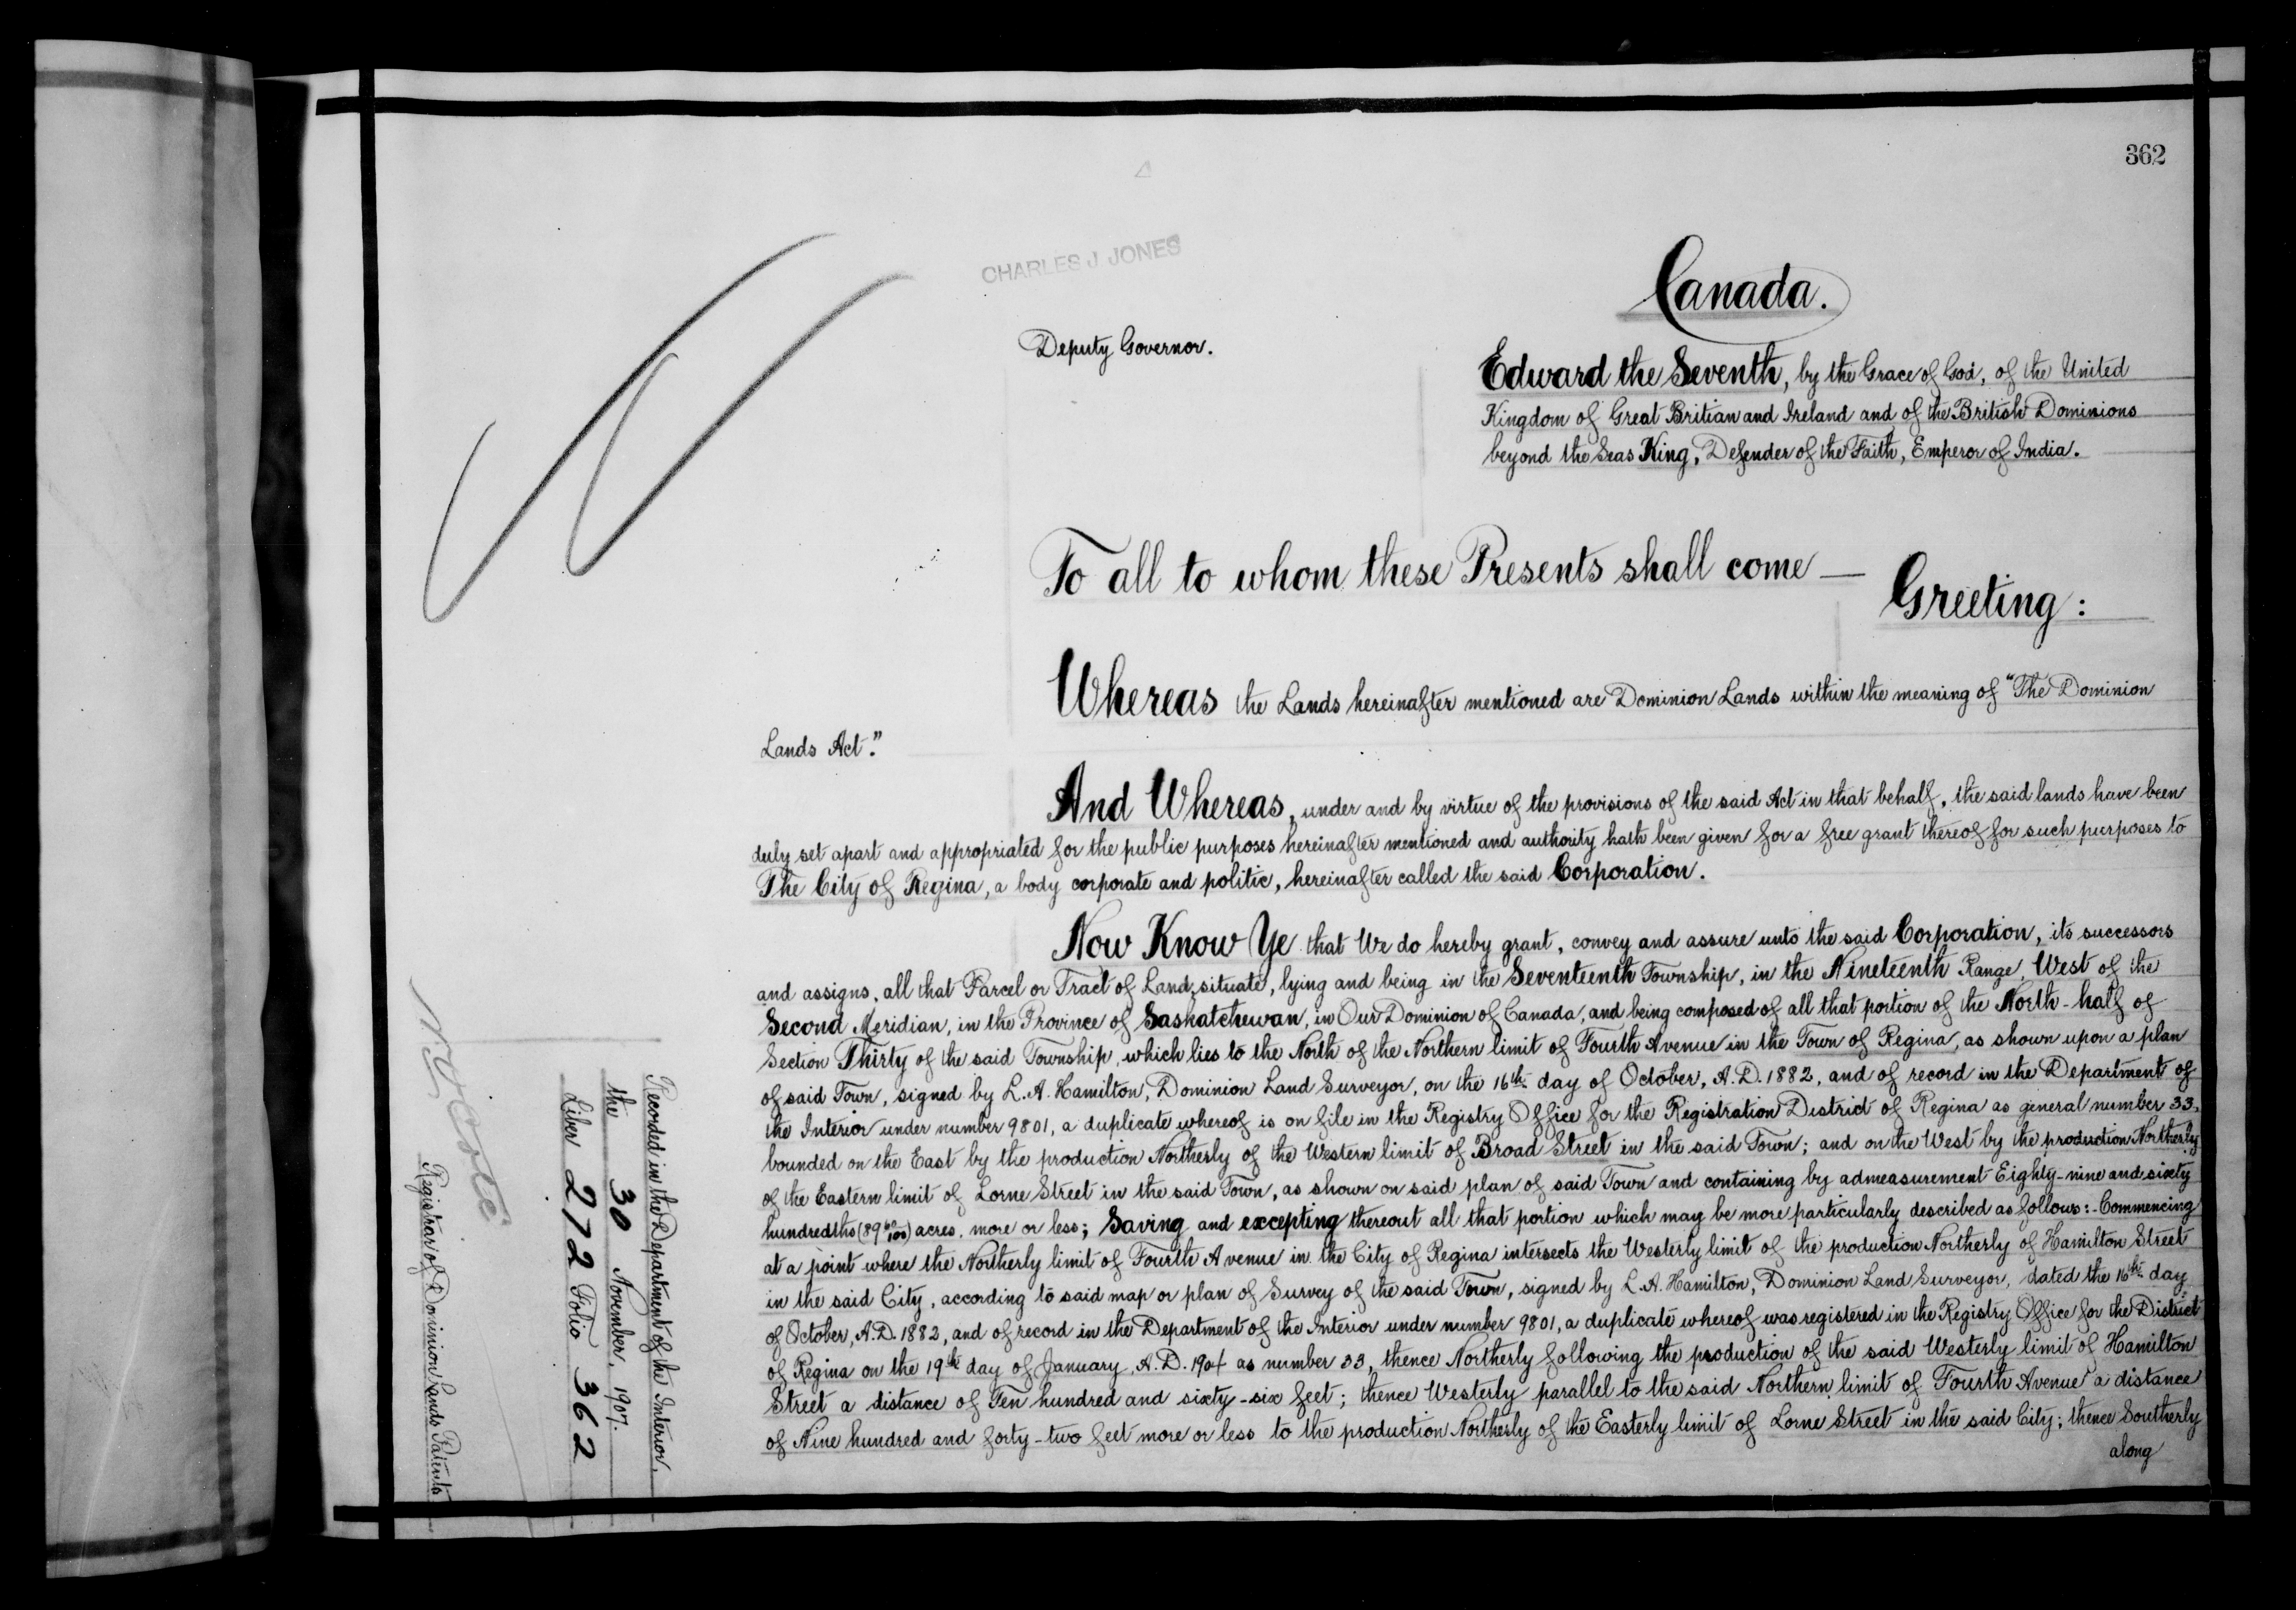 362
CHARLES J JONES
Canada.
Deputy Governor.
Edward the Seventh, by the Grace of God, of the United
Kingdom of Great Britian and Ireland and of the British Dominions
beyond the Seas King, Defender of the Faith, Emperor of India.
To all to whom these Presents shall come —
Greeting:
Whereas the Lands hereinafter mentioned are Dominion Lands within the meaning of "The Dominion
Lands Act."
And Whereas, under and by virtue of the provisions of the said Act in that behalf, the said lands have been
duly set apart and appropriated for the public purposes hereinafter mentioned and authority hath been given for a free grant thereof for such purposes to
The City of Regina, a body corporate and politic, hereinafter called the said Corporation.
Now Know Ye that We do hereby grant, convey and assure unto the said Corporation, its successors
and assigns, all that Parcel or Tract of Land, situate, lying and being in the Seventeenth Township, in the Nineteenth Range, West of the
Second Meridian, in the Province of Saskatchewan, in Our Dominion of Canada, and being composed of all that portion of the North-half of
Section Thirty of the said Township, which lies to the North of the Northern limit of Fourth Avenue in the Town of Regina, as shown upon a plan
of said Town, signed by L. A. Hamilton, Dominion Land Surveyor, on the 16th day of October, A.D. 1882, and of record in the Department of
the Interior under number 9801, a duplicate whereof is on file in the Registry Office for the Registration District of Regina as general number 33,
bounded on the East by the production Northerly of the Western limit of Broad Street in the said Town; and on the West by the production Northerly
of the Eastern limit of Lorne Street in the said Town, as shown on said plan of said Town and containing by admeasurement Eighty-nine and sixty
hundredths (89 60/100) acres, more or less; Saving and excepting thereout all that portion which may be more particularly described as follows:- Commencing
at a point where the Northerly limit of Fourth Avenue in the City of Regina intersects the Westerly limit of the production Northerly of Hamilton Street
in the said City, according to said map or plan of Survey of the said Town, signed by L. A. Hamilton, Dominion Land Surveyor, dated the 16th day
of October, A.D. 1882, and of record in the Department of the Interior under number 9801, a duplicate whereof was registered in the Registry Office for the District
of Regina on the 19th day of January, A.D. 1904 as number 33, thence Northerly following the production of the said Westerly limit of Hamilton
Street a distance of Ten hundred and sixty-six feet; thence Westerly parallel to the said Northern limit of Fourth Avenue a distance
of Nine hundred and forty-two feet more or less to the production Northerly of the Easterly limit of Lorne Street in the said City; thence Southerly
along
Recorded in the Department of the Interior,
the 30 November, 1907.
Liber 272 Folio 362
Côté
Registrar of Dominion Lands Patents